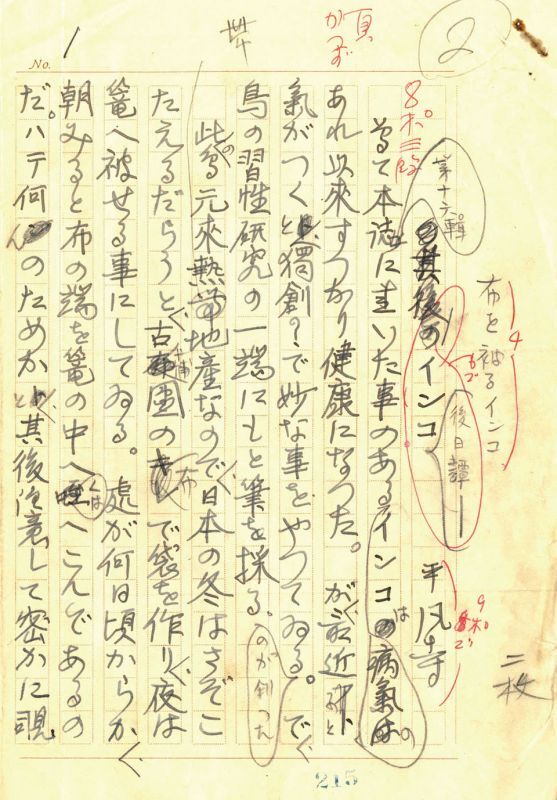 2
No. 1
頁
かつお
8ポ三段
第十六輯
布を被るインコ
4
其後のインコ
後日譚
平凡寺
9ポ
二枚
曾て本誌に書いた事のあるインコの病氣は
あれ以來すつかり健康になつた。が最近
氣がつくと獨創?で妙な事をやつてゐる。で
鳥の習性研究の一端にもと筆を採る。
此鳥元來熱帶地産なので日本の冬はさぞこ
たえるだらうと古蒲団の布で袋を作り夜は
籠へ被せる事にしてゐる。處が何日頃からか
朝みると布の端を籠の中へくはへこんであるの
だ。ハテ何んのためかと其後注意して密かに覗
のが創つた
215